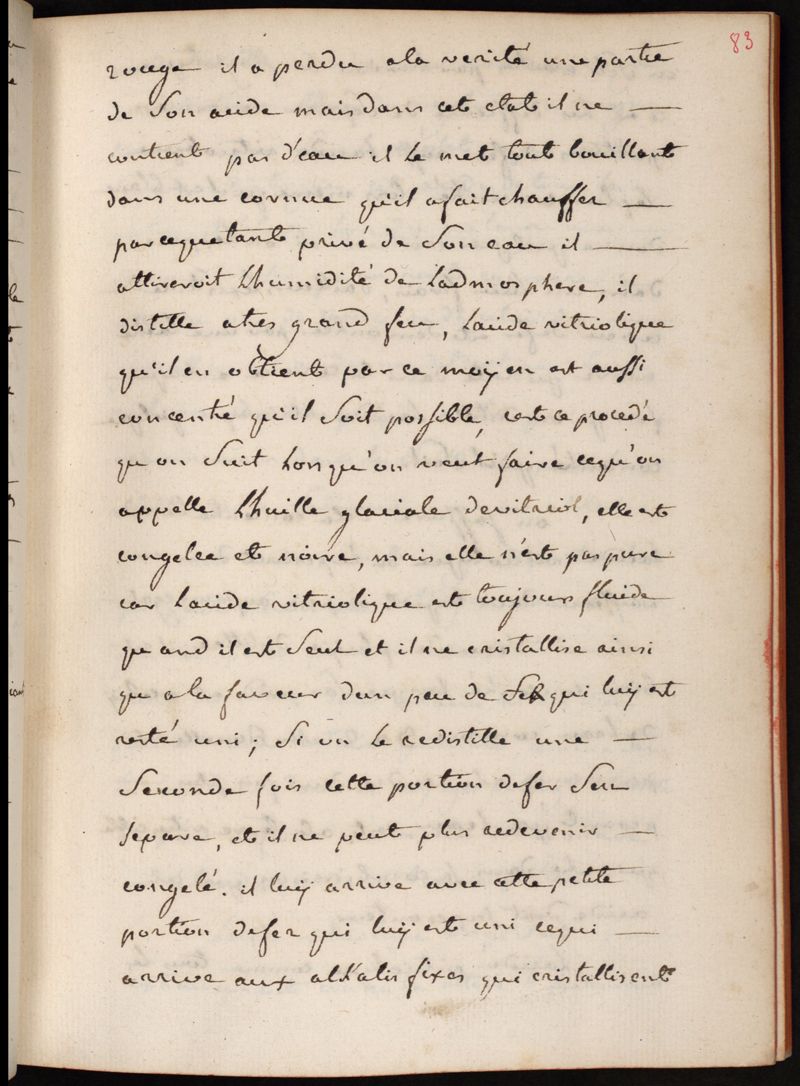 83
rouge il a perdu ala verité une partie
de Son acide mais dans cet etat il ne —
contient pas d'eau il Le met tout bouillant
dans une cornue qu'il a fait chauffer —
parceque tant privé de Son eau il —
attireroit Lhumidité de Ladmosphere, il
distille a tres grand feu, Lacide vitriolique
qu'il en obtient par ce moÿen est aussi
concentré qu'il Soit possible, cest ce procedé
qu on Suit Lorsqu'on veut faire cequ'on
appelle Lhuille glaciale devitriol, elle est
congelée et noire, mais elle n'est pas pure
car Lacide vitriolique est toujours fluide
quand il est Seul et il ne cristallise ainsi
qu a la faveur dun peu de Sel qui luÿ est
resté uni; Si on Le redistille une —
Seconde fois cette portion defer Sen
Separe, et il ne peut plus redevenir —
congelé. il luÿ arrive avec cette petite
portion defer qui luÿ est uni cequi —
arrive aux alkalis fixes qui cristallisent